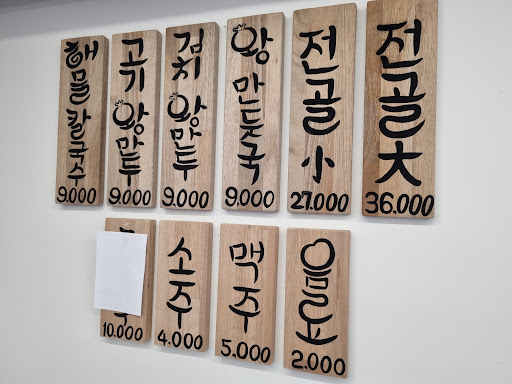 해물칼국수
9.000
고기왕만두
9.000
김치왕만두
9.000
왕만둣국
9.000
전골小
27.000
전골大
36.000
10.000
소주
4.000
맥주
5.000
음료
2.000